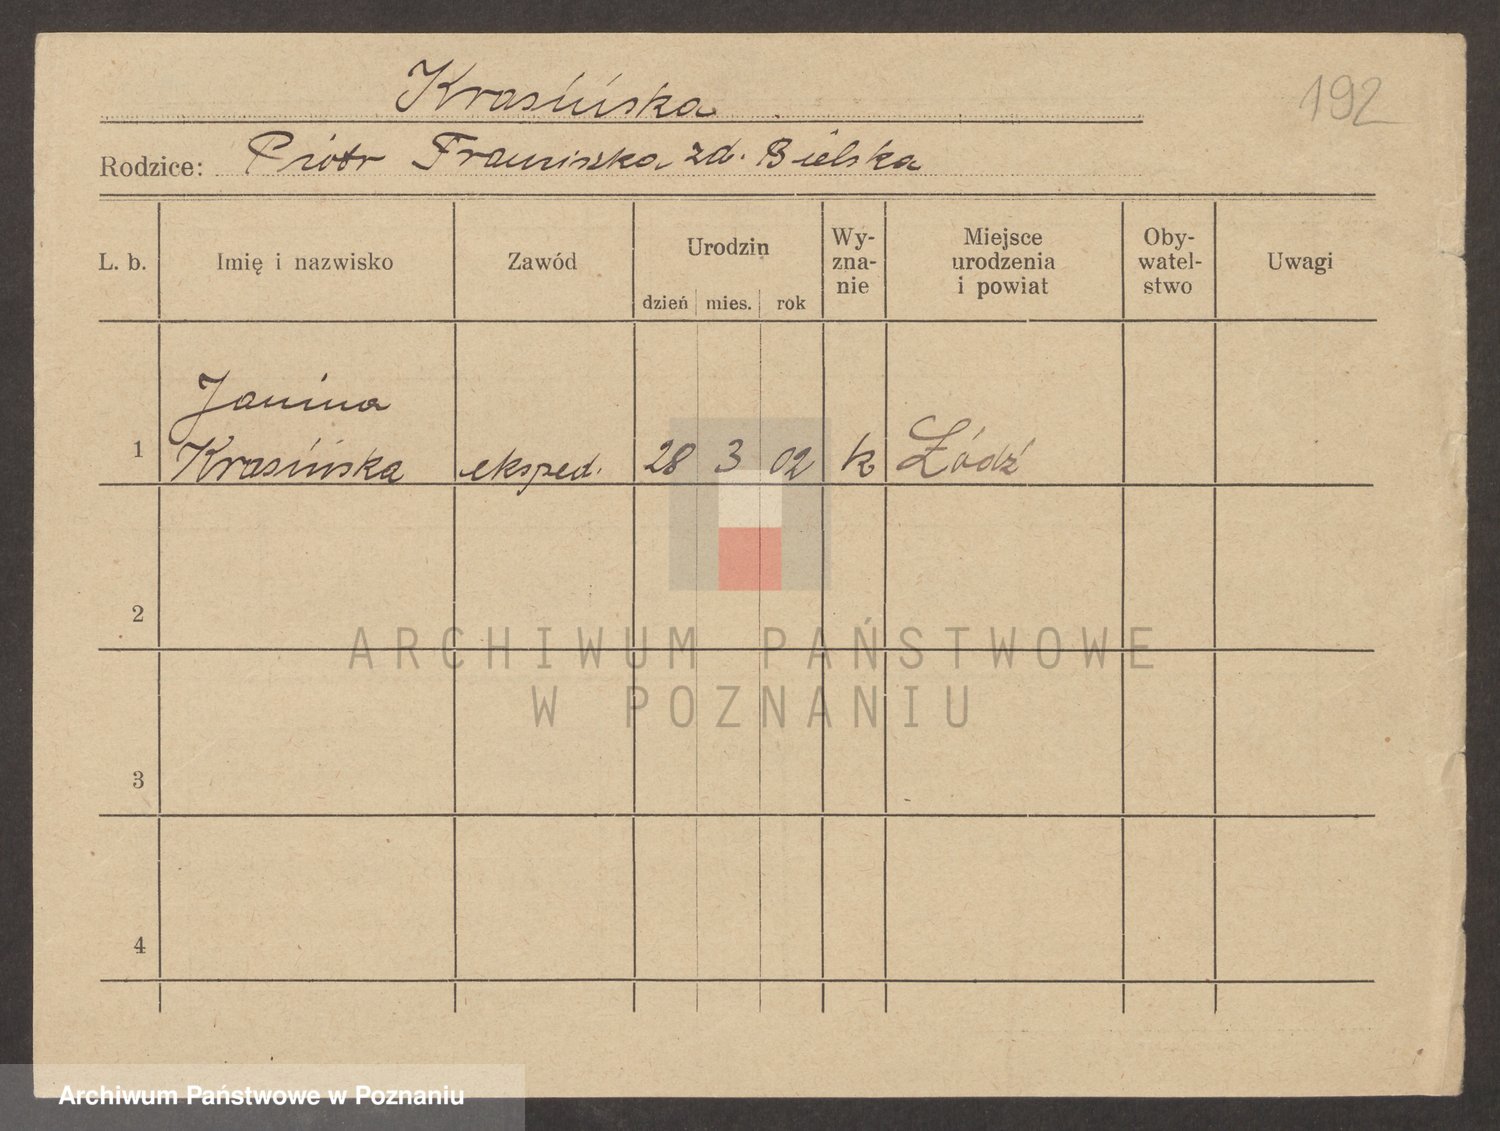 Krasińska
192
Rodzice: Piotr Franciszka zd. Bielska
L. b.
Imię i nazwisko
Zawód
Urodzin
dzień mies. rok
Wy-
zna-
nie
Miejsce
urodzenia
i powiat
Oby-
watel-
stwo
Uwagi
1
Janina
Krasińska
eksped.
28 3 02
k
Łódź
2
3
4
ARCHIWUM PAŃSTWOWE
W POZNANIU
Archiwum Państwowe w Poznaniu